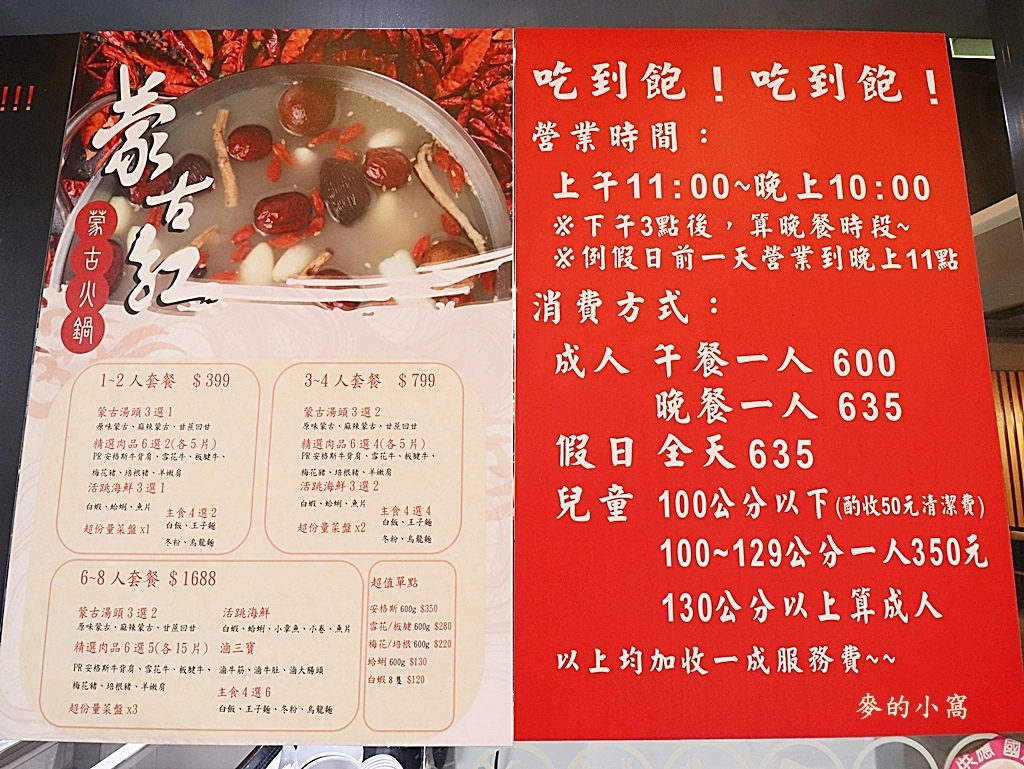 !!!
蒙古紅
蒙古火鍋
1~2人套餐 $399
蒙古湯頭3選1
原味蒙古、麻辣蒙古、甘蔗回甘
精選肉品6選2(各5片)
PR安格斯牛背肩、雪花牛、板腱牛、
梅花豬、培根豬、羊嫩肩
活跳海鮮3選1
白蝦、蛤蜊、魚片
主食4選2
白飯、王子麵
冬粉、烏龍麵
超份量菜盤x1
3~4人套餐 $799
蒙古湯頭3選2
原味蒙古、麻辣蒙古、甘蔗回甘
精選肉品6選4(各5片)
PR安格斯牛背肩、雪花牛、板腱牛、
梅花豬、培根豬、羊嫩肩
活跳海鮮3選2
白蝦、蛤蜊、魚片
主食4選4
白飯、王子麵
冬粉、烏龍麵
超份量菜盤x2
6~8人套餐 $1688
蒙古湯頭3選2
原味蒙古、麻辣蒙古、甘蔗回甘
精選肉品6選5(各15片)
PR安格斯牛背肩、雪花牛、板腱牛、
梅花豬、培根豬、羊嫩肩
超份量菜盤x3
活跳海鮮
白蝦、蛤蜊、小章魚、小卷、魚片
滷三寶
滷牛筋、滷牛肚、滷大腸頭
主食4選6
白飯、王子麵、冬粉、烏龍麵
超值單點
安格斯600g $350
雪花/板腱600g $280
梅花/培根600g $220
蛤蜊600g $130
白蝦8隻 $120
吃到飽!吃到飽!
營業時間:
上午11:00~晚上10:00
※下午3點後,算晚餐時段~
※例假日前一天營業到晚上11點
消費方式:
成人 午餐一人 600
晚餐一人 635
假日 全天 635
兒童 100公分以下(酌收50元清潔費)
100~129公分一人350元
130公分以上算成人
以上均加收一成服務費~~
麥的小窩